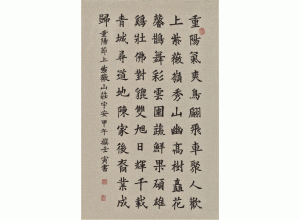 重陽氣爽鳥翩飛車聚人歡
上紫薇嶺秀山幽高樹矗花
馨鵲舞彩雲圍蔬鮮果碩雄
鷄壯佛對貔雙旭日輝千載
青城尋道地陳家後裔業成
歸 重陽節上紫薇山莊宇安甲午撰士寅書